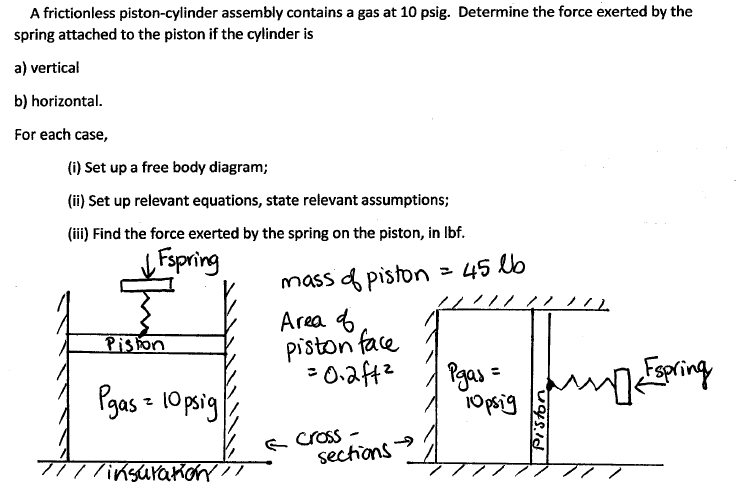 A frictionless piston-cylinder assembly contains a gas at 10 psig. Determine the force exerted by the
spring attached to the piston if the cylinder is
a) vertical
b) horizontal.
For each case,
(i) Set up a free body diagram;
(ii) Set up relevant equations, state relevant assumptions;
(iii) Find the force exerted by the spring on the piston, in lbf.
Fspring
mass of piston = 45 lb
Area of
piston face
= 0.2ft²
Piston
Pgas = 10psig
insulation
← cross-
sections →
Pgas =
10psig
piston
Fspring